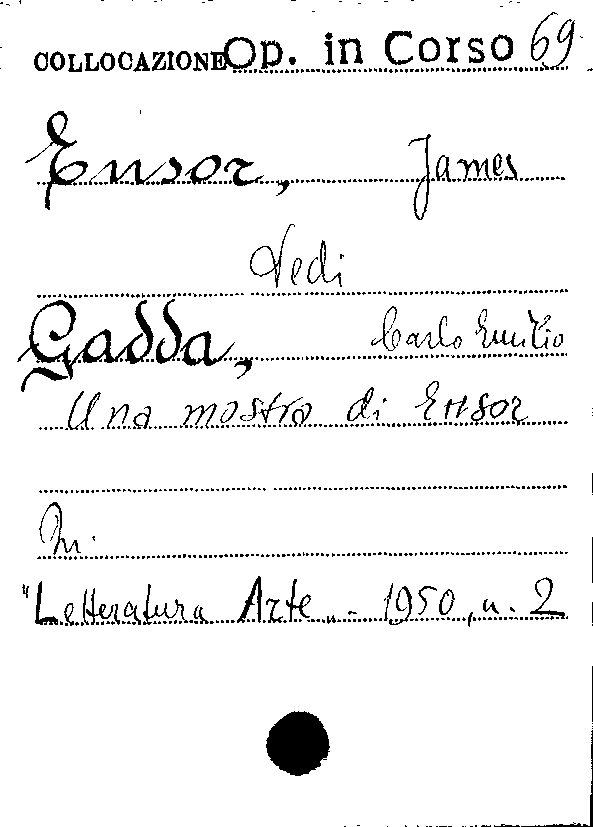 COLLOCAZIONE Op. in Corso 69
Ensor, James
Vedi
Gadda, Carlo Emilio
Una mostra di Ensor
In.
"Letteratura Arte„ - 1950, n. 2